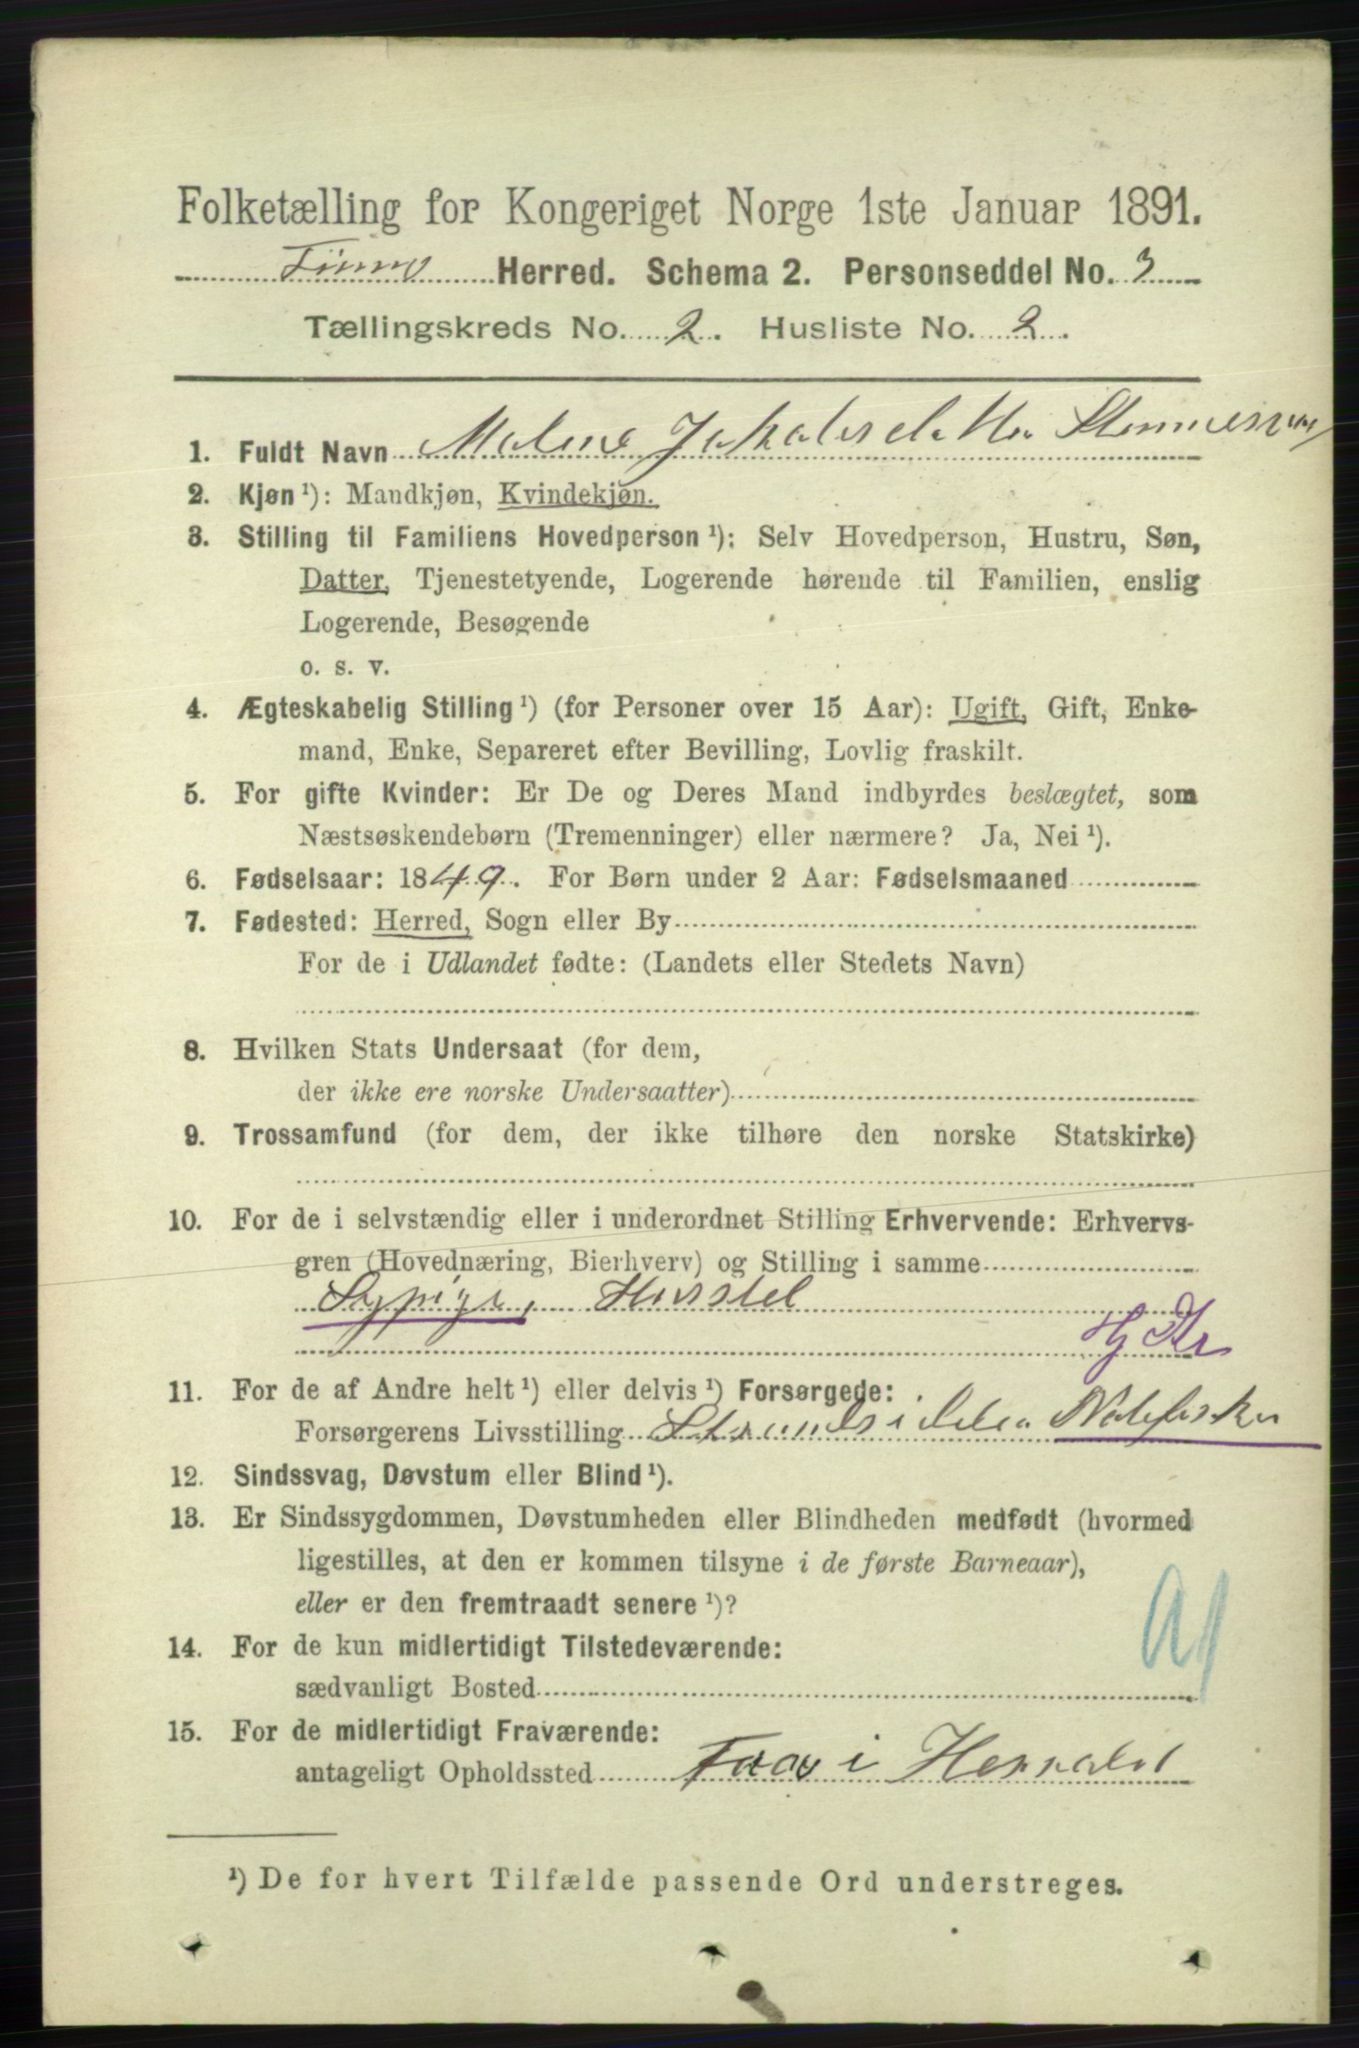 Folketælling for Kongeriget Norge 1ste Januar 1891.
Herred. Schema 2. Personseddel No. 3
Tællingskreds No. 2. Husliste No. 2.
1. Fuldt Navn Malene Jakobsdatter
2. Kjøn ¹): Mandkjøn, Kvindekjøn.
3. Stilling til Familiens Hovedperson ¹): Selv Hovedperson, Hustru, Søn,
Datter, Tjenestetyende, Logerende hørende til Familien, enslig
Logerende, Besøgende
o. s. v.
4. Ægteskabelig Stilling ¹) (for Personer over 15 Aar): Ugift, Gift, Enke-
mand, Enke, Separeret efter Bevilling, Lovlig fraskilt.
5. For gifte Kvinder: Er De og Deres Mand indbyrdes beslægtet, som
Næstsøskendebørn (Tremenninger) eller nærmere? Ja, Nei ¹).
6. Fødselsaar: 1849. For Børn under 2 Aar: Fødselsmaaned
7. Fødested: Herred, Sogn eller By
For de i Udlandet fødte: (Landets eller Stedets Navn)
8. Hvilken Stats Undersaat (for dem,
der ikke ere norske Undersaatter)
9. Trossamfund (for dem, der ikke tilhøre den norske Statskirke)
10. For de i selvstændig eller i underordnet Stilling Erhvervende: Erhvervs-
gren (Hovednæring, Bierhverv) og Stilling i samme
Sypige, Husstel
11. For de af Andre helt ¹) eller delvis ¹) Forsørgede:
Forsørgerens Livsstilling Strandsidder
12. Sindssvag, Døvstum eller Blind ¹).
13. Er Sindssygdommen, Døvstumheden eller Blindheden medfødt (hvormed
ligestilles, at den er kommen tilsyne i de første Barneaar),
eller er den fremtraadt senere ¹)?
14. For de kun midlertidigt Tilstedeværende:
sædvanligt Bosted
15. For de midlertidigt Fraværende:
antageligt Opholdssted i
¹) De for hvert Tilfælde passende Ord understreges.